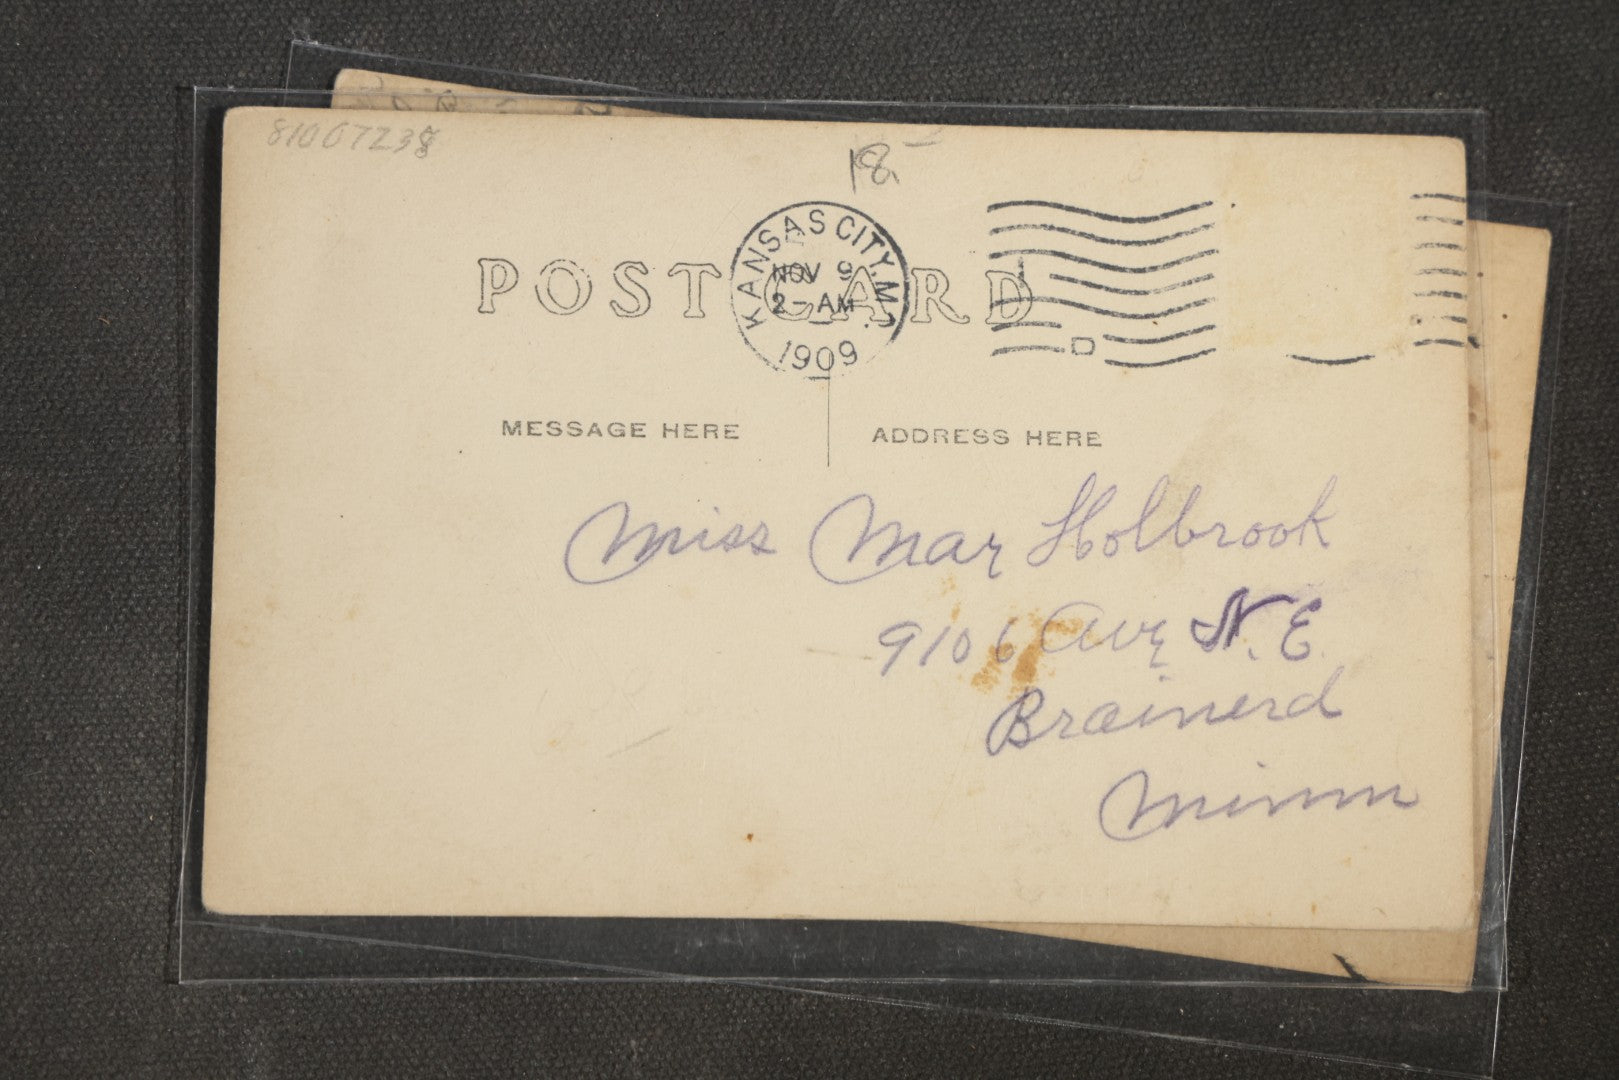 81007238
18
POST CARD
KANSAS CITY, MO.
NOV 9
2-AM
1909
D
MESSAGE HERE
ADDRESS HERE
Miss May Holbrook
910 6 Ave N.E.
Brainerd
Minn